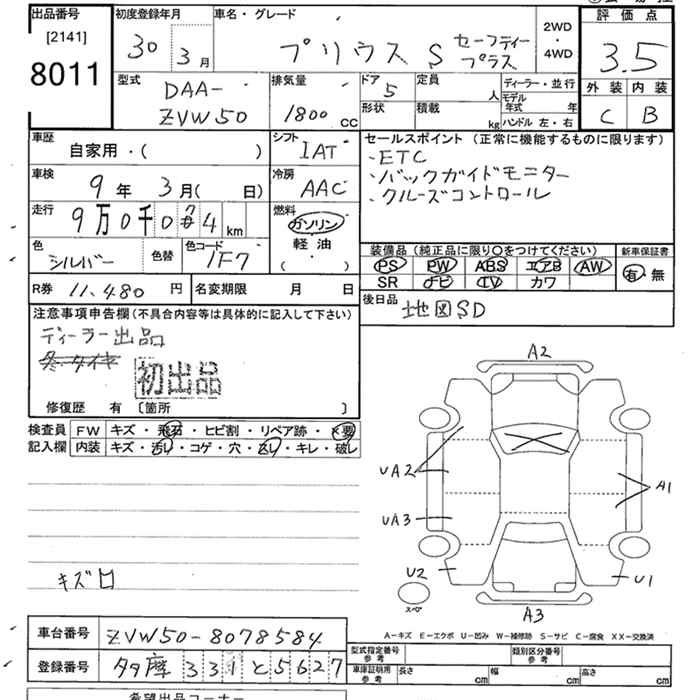 出品番号 初度登録年月 車名・グレード 2WD ・ 4WD 評価点
[2141] 8011 30年 3月 プリウス S セーフティープラス 3.5
型式 DAA-ZVW50 排気量 1800 CC ドア 5 定員 人 ディーラー・並行 外装 内装
形状 積載 kg モデル年式 年 ハンドル 左・右 C B
車歴 自家用・( ) シフト IAT セールスポイント (正常に機能するものに限ります)
・ETC
車検 9年 3月( 日) 冷房 AAC ・バックガイドモニター
・クルーズコントロール
走行 9万0千0 4 km 燃料 ガソリン 軽油 ( ・ )
色 シルバー 色替 色コード 1F7 装備品 (純正品に限り○をつけてください) 新車保証書
PS PW ABS エアB AW 有・無
SR ナビ TV カワ
R券 11,480 円 名変期限 月 日 後日品 地図SD
注意事項申告欄 (不具合内容等は具体的に記入して下さい)
ディーラー出品
冬タイヤ
初出品
修復歴 有 〔箇所 〕
検査員 FW キズ・飛石・ヒビ割・リペア跡・×要
記入欄 内装 キズ・汚れ・コゲ・穴・スレ・キレ・破レ
A2
UA2 A1
UA3
U2 U1
スペ
A3
キズ
A-キズ E-エクボ U-凹み W-補修跡 S-サビ C-腐食 XX-交換済
車台番号 ZVW50-8078584 型式指定番号 参考 類別区分番号 参考
登録番号 多摩 331 と 5627 車庫証明用 参考 長さ cm 幅 cm 高さ cm
希望出品コーナー